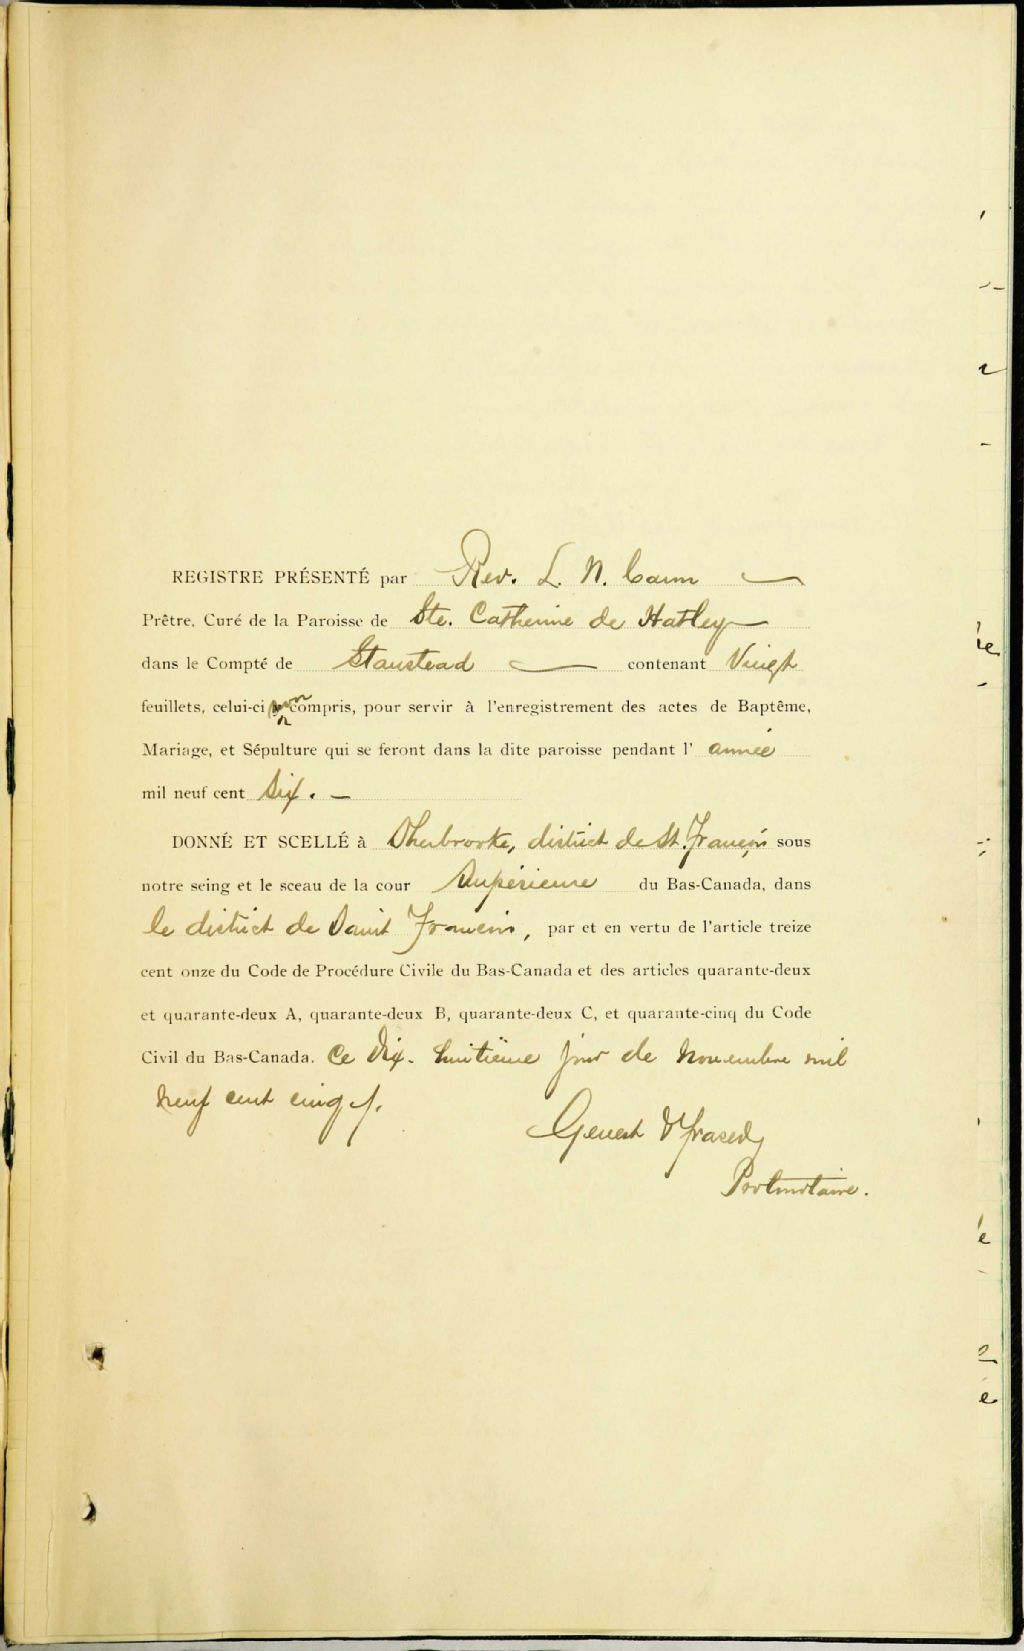 REGISTRE PRÉSENTÉ par Rev. L. N. Caron
Prêtre, Curé de la Paroisse de Ste. Catherine de Hatley
dans le Compté de Stanstead contenant Vingt
feuillets, celui-ci non compris, pour servir à l'enregistrement des actes de Baptême,
Mariage, et Sépulture qui se feront dans la dite paroisse pendant l' année
mil neuf cent Six. —
DONNÉ ET SCELLÉ à Sherbrooke, district de St. François sous
notre seing et le sceau de la cour Supérieure du Bas-Canada, dans
le district de Saint François, par et en vertu de l'article treize
cent onze du Code de Procédure Civile du Bas-Canada et des articles quarante-deux
et quarante-deux A, quarante-deux B, quarante-deux C, et quarante-cinq du Code
Civil du Bas-Canada. Ce Dix-huitième jour de novembre mil
neuf cent cinq
Genest
Protonotaire.